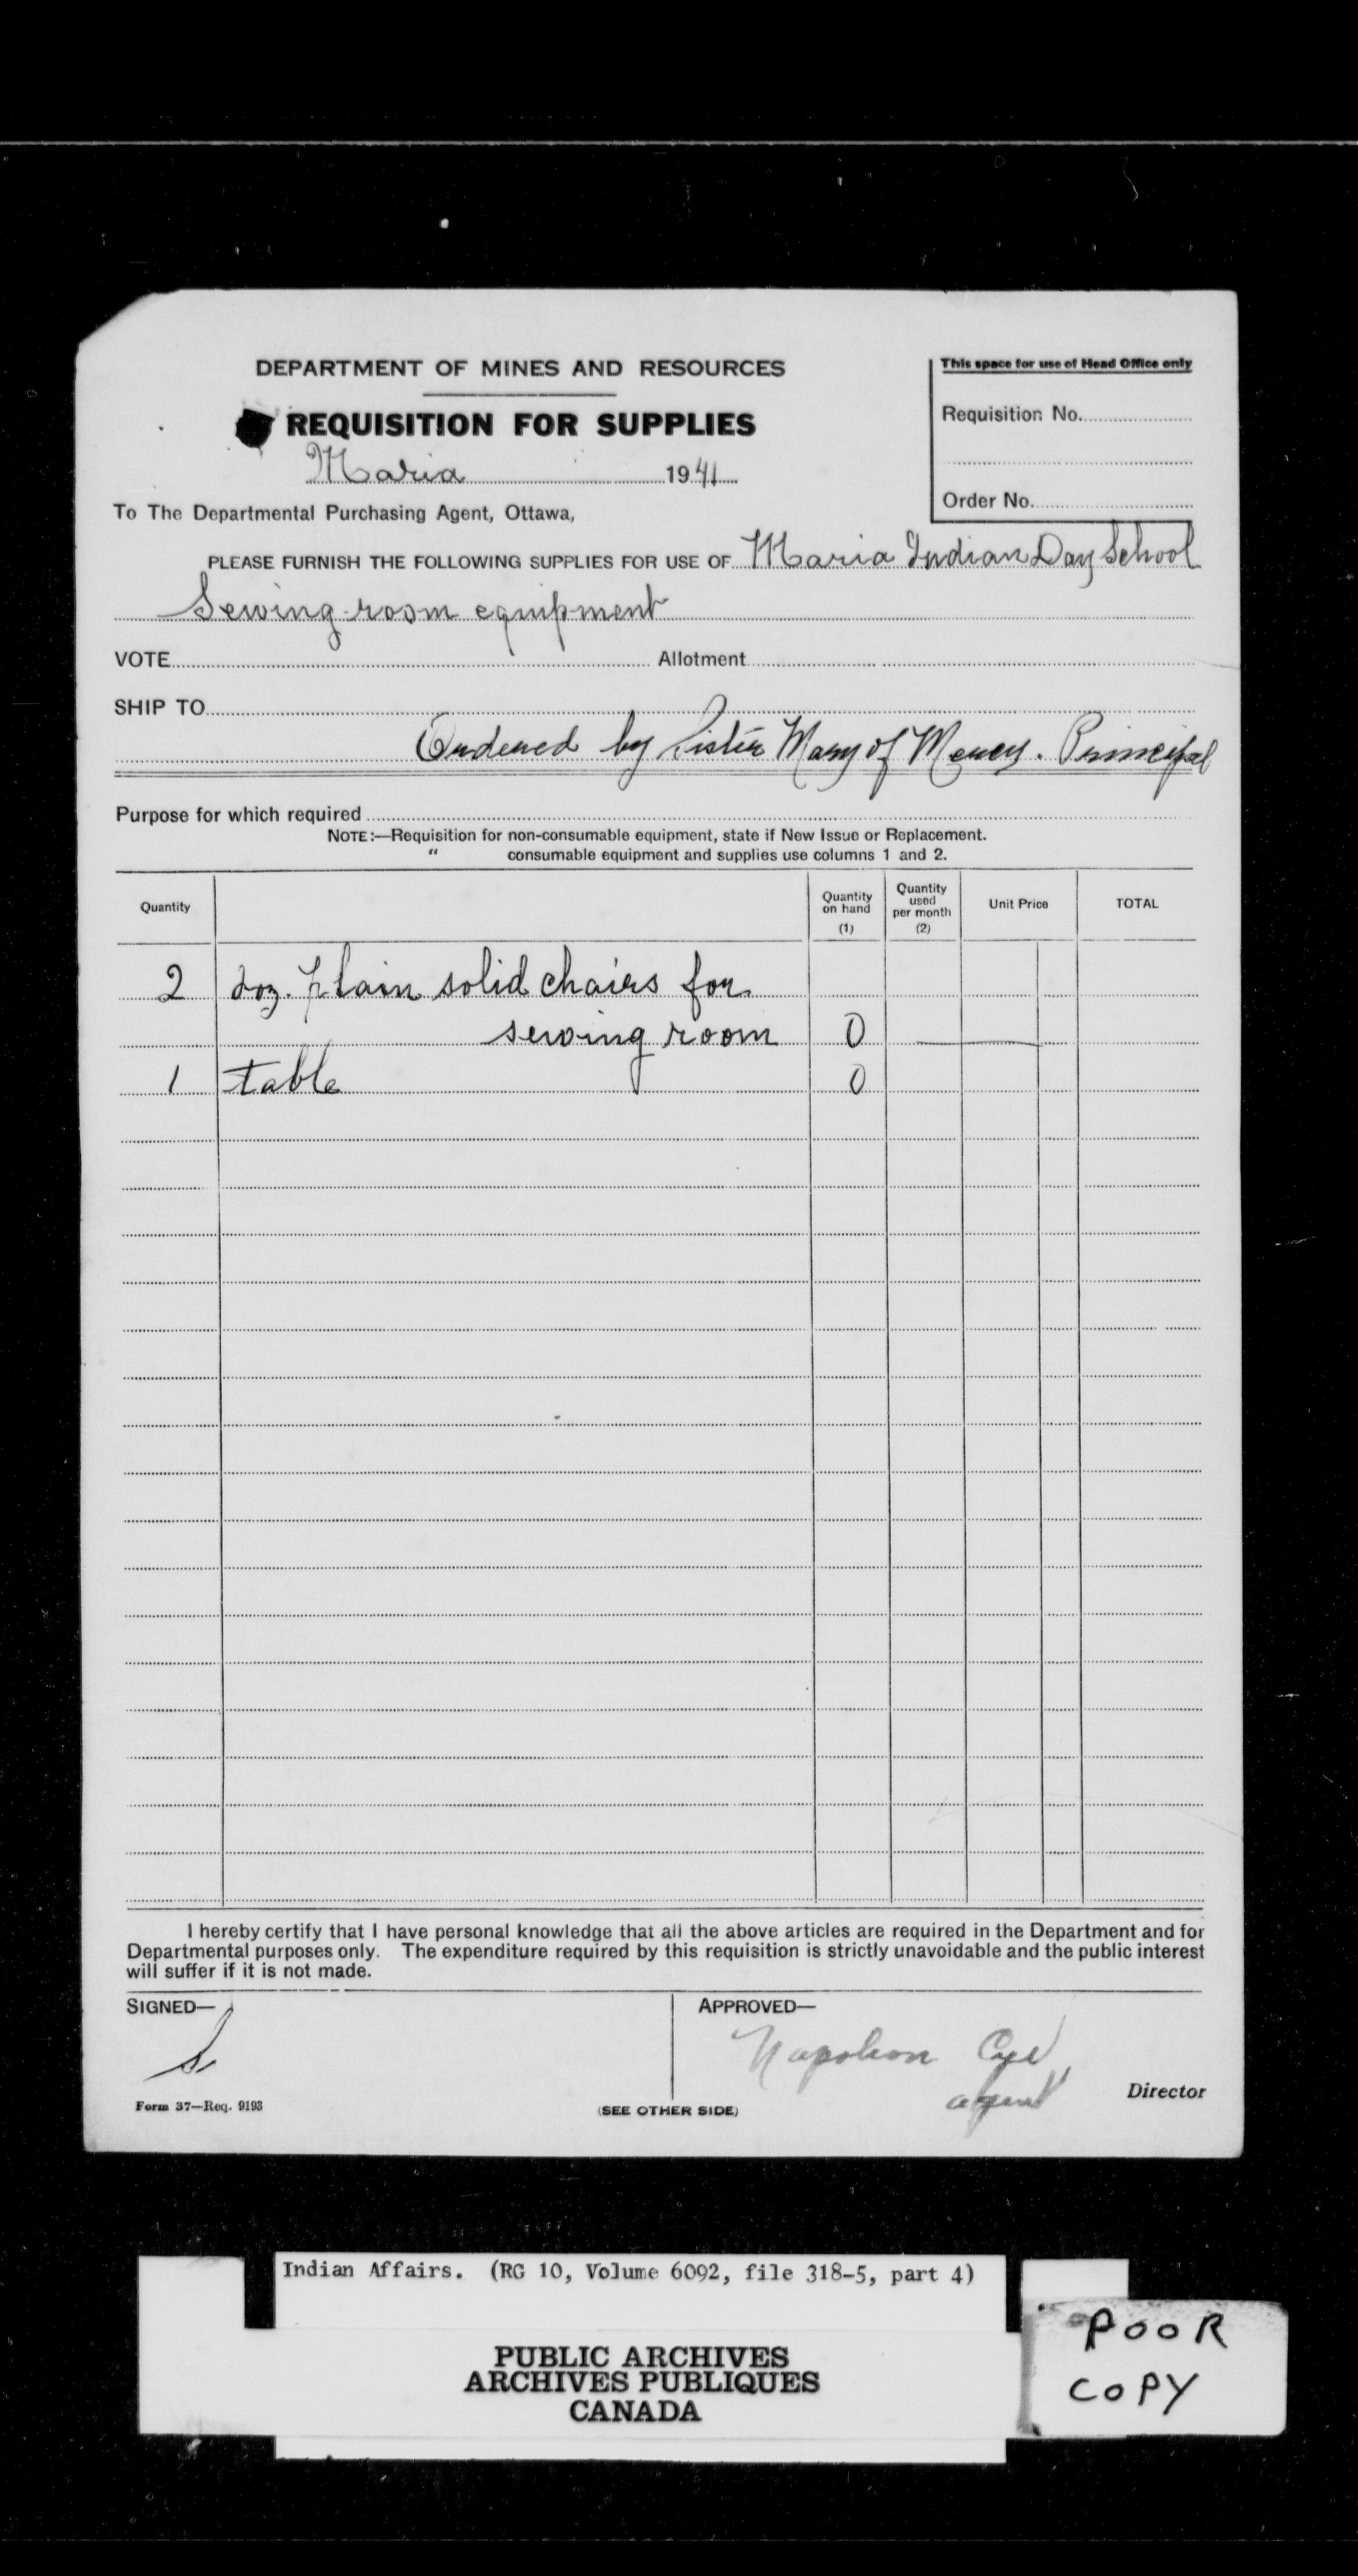 DEPARTMENT OF MINES AND RESOURCES
REQUISITION FOR SUPPLIES
Maria 1941
This space for use of Head Office only
Requisition No.
Order No.
To The Departmental Purchasing Agent, Ottawa,
PLEASE FURNISH THE FOLLOWING SUPPLIES FOR USE OF Maria Indian Day School
Sewing-room equipment
VOTE Allotment
SHIP TO
Ordered by Sister Mary of Mercy. Principal
Purpose for which required
NOTE:—Requisition for non-consumable equipment, state if New Issue or Replacement.
" consumable equipment and supplies use columns 1 and 2.
Quantity Quantity on hand (1) Quantity used per month (2) Unit Price TOTAL
2 doz. plain solid chairs for
sewing room 0 —
1 table 0
I hereby certify that I have personal knowledge that all the above articles are required in the Department and for
Departmental purposes only. The expenditure required by this requisition is strictly unavoidable and the public interest
will suffer if it is not made.
SIGNED— APPROVED—
Napoleon Cyr
agent Director
Form 37—Req. 9193 (SEE OTHER SIDE)
Indian Affairs. (RG 10, Volume 6092, file 318-5, part 4)
PUBLIC ARCHIVES
ARCHIVES PUBLIQUES
CANADA
POOR
COPY